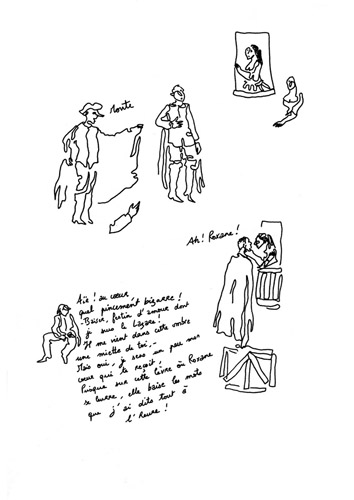 Monte
Ah! Roxane!
Aïe! au cœur
quel pincement bizarre!
Baiser, festin d'amour dont
je suis le Lazare!
Il me vient dans cette ombre
une miette de toi,
Mais oui, je sens un peu mon
cœur qui te reçoit,
Puisque sur cette lèvre où Roxane
se leurre, elle baise les mots
que j'ai dits tout à
l'heure!